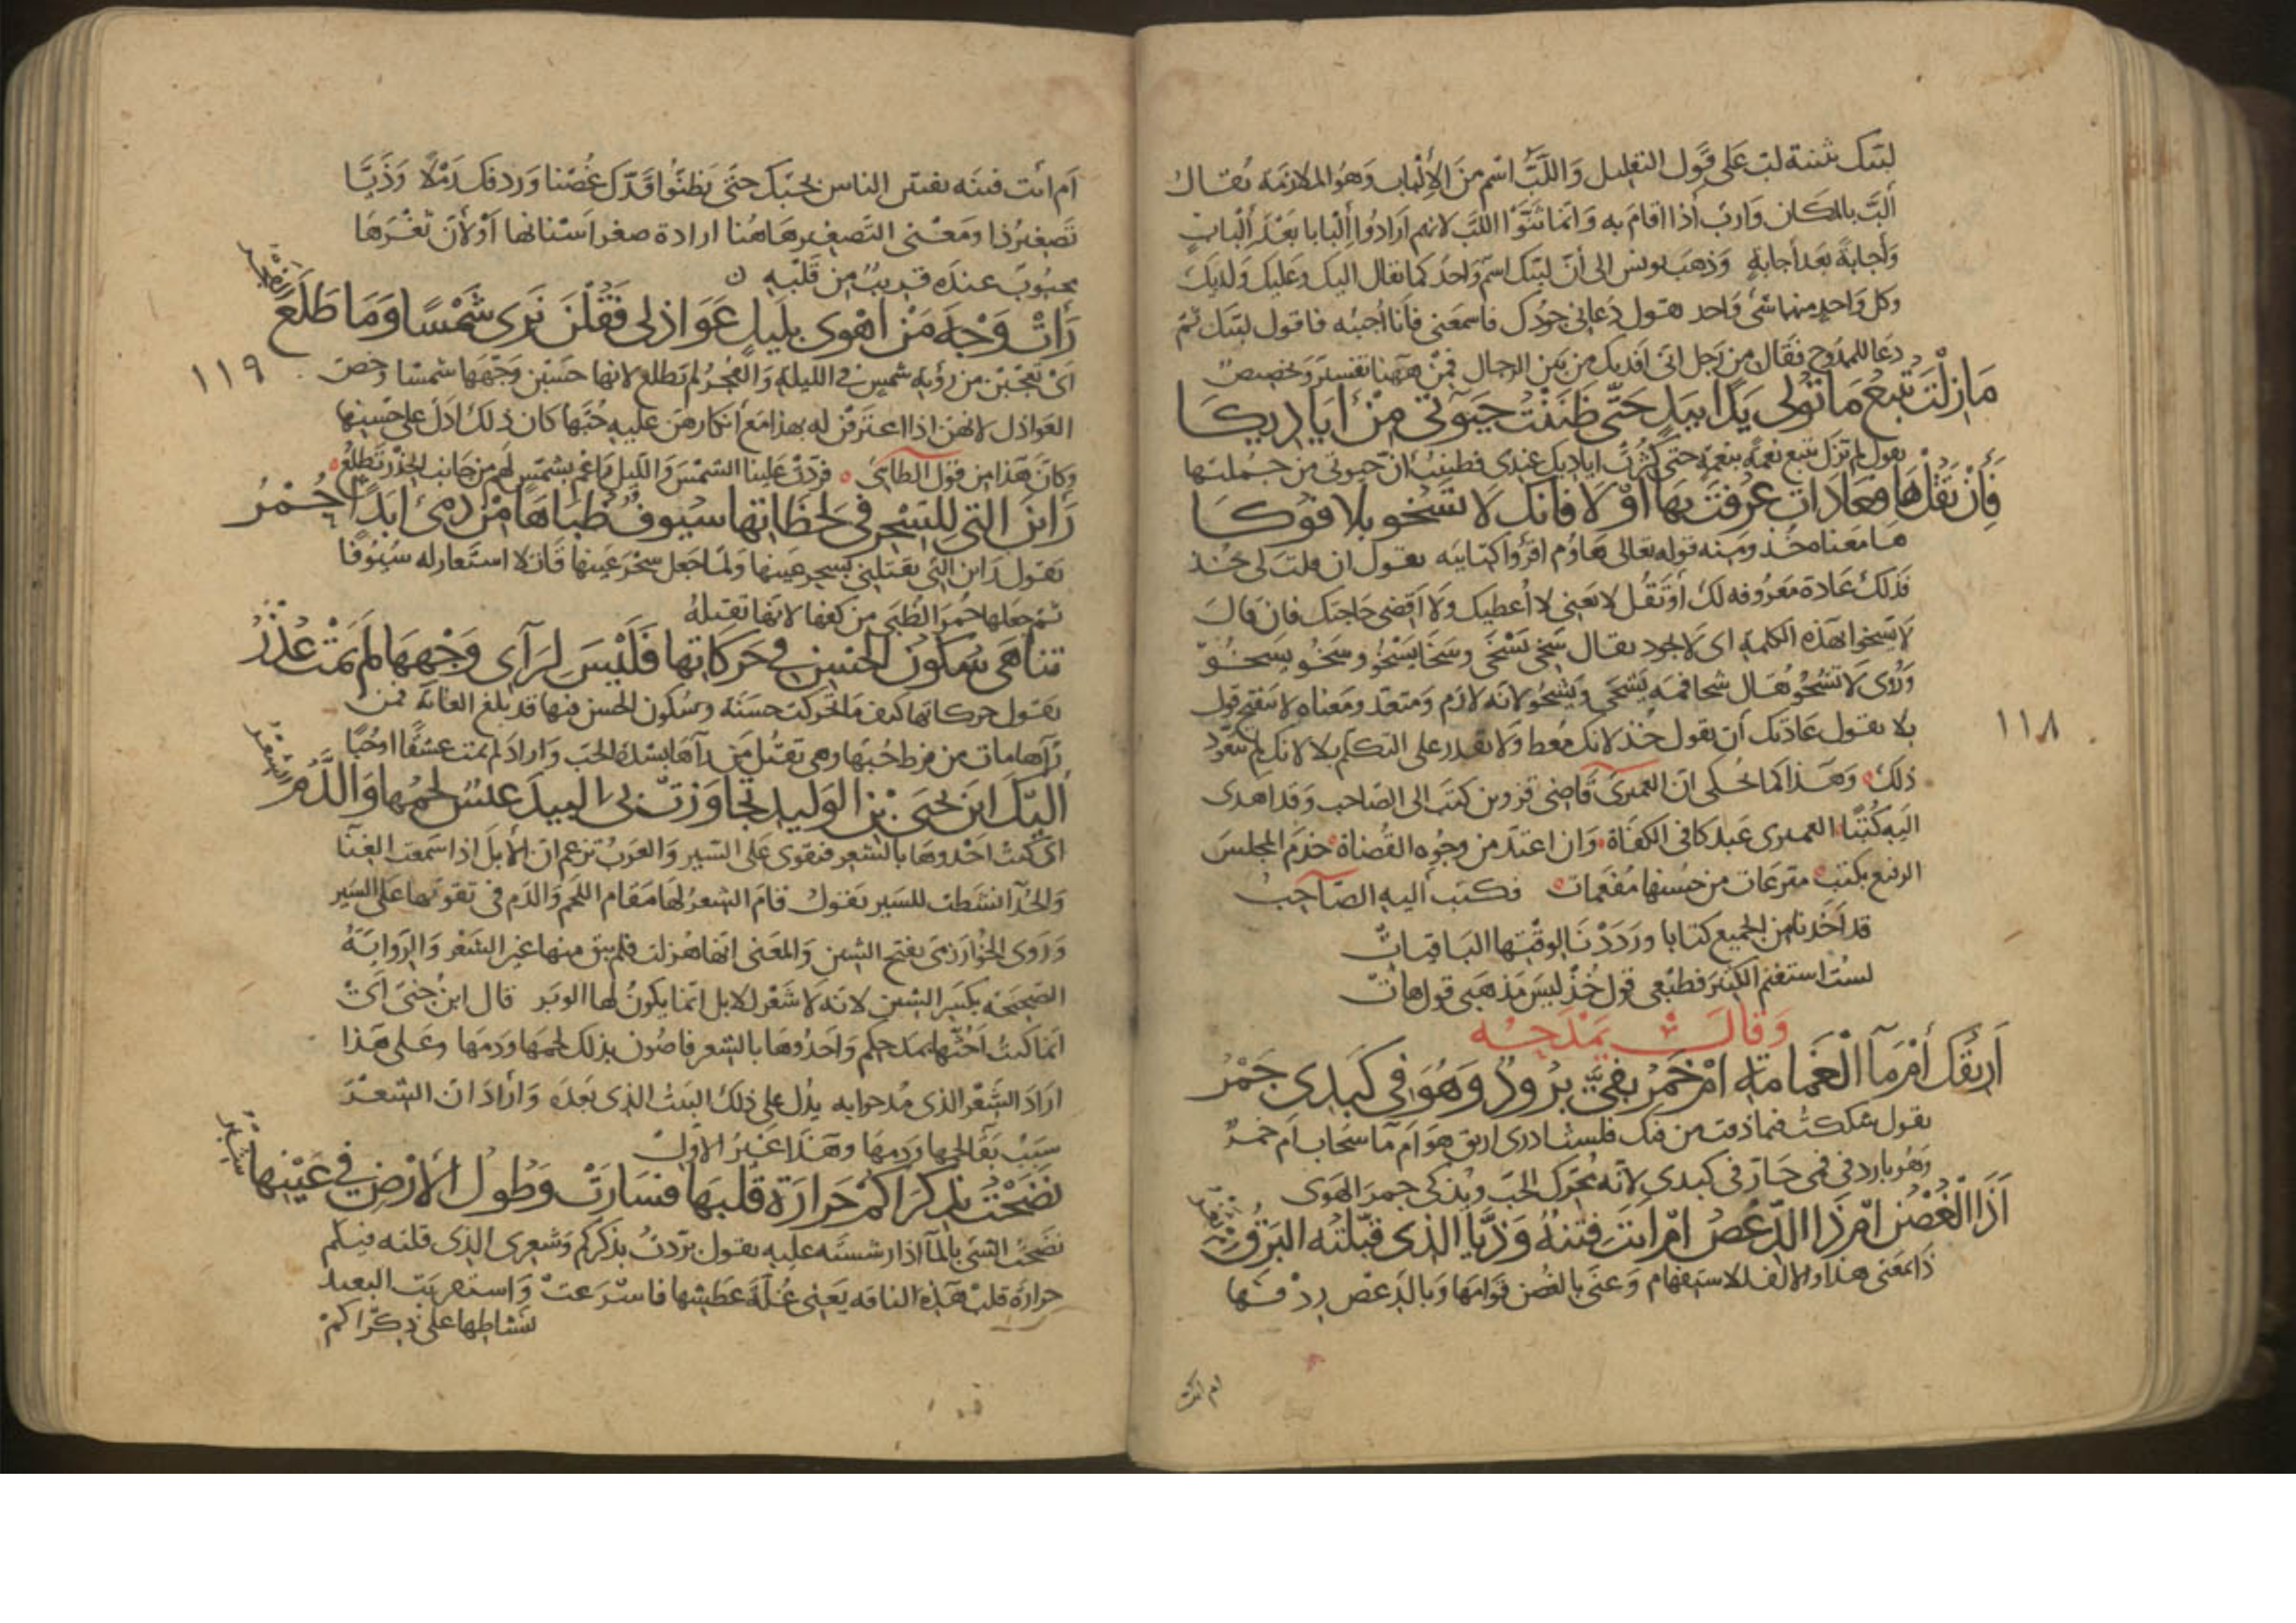 لبيك تثنية لب على قول الخليل واللَّبُّ اسْم منَ الإِلْباب وَهُو الملازمَة يُقـال
ألبّ بالمكان وَاربّ أذا اقامَ به وَانما ثنَّوْا اللبَّ لانهم ارَادُوا إلْبابا بَعْدَ إِلْبابٍ
وَأجابةً بَعد أجابةٍ وَذهَبَ يونس الى أنّ لبيّك اسمٌ وَاحدٌ كما يقال اليك وَعليك وَلديك
وكل وَاحدٍ منها شئ وَاحد يقول دَعاني جودُك فاسمعَنى فأنا أُجيبُه فاقول لبّيك ثمّ
دعَا للممدُوح فقال من رَجل اىّ افديك من بَين الرجال فمِنْ هَهُنا تفسير وَتخصيص
مَا زِلْتَ تُتبِعُ مَا تُولى يَدًا بِيَدٍ حَتّى ظَنَنْتُ حَيٰوتي مِنْ أَيَادِيكَـا
يقول لم تزل تتبع نعمةً بنعمةٍ حتى كثُرتْ اياديك عندى فظننتُ انّ حيوتي من جُملتها
فَإنْ تَقُلْ هَا فَعَادَاتٌ عُرِفْتَ بِهَا أوْ لَا فَانّك لَا تَسْخو بِلَا فُوكَـا
هـا معناه خُـذ ومنه قوله تعالى هَاؤم اقرؤا كتابيه يقـول ان قلتَ لى خـذ
فذلك عَادة مَعرُوفه لك أوْ تَقُـل لا يَعنى لا أُعطيك وَلا اَقضى حَاجتك فان فاك
لا يَسْخوا بهذه الكلمةِ اى لا يجود يقـال سَخِى يَسْخَى وسَخَا يَسْخُو وسَخُـو يسخـو
وَرُوى لا تَشحُو يُقـال شحا فمه يَشحَى وَيَشحُو لانه لازم وَمتعدّ ومَعناه لا يَنفتح قول
بلا يقـول عَادتك أن تقول خُذ لانك مُعط وَلا تقدر على التكلّم بلا لانك لم تتعوّد
ذلك وَهَـذا كما حُكى انّ العميرىّ قاضى قزوين كتَب الى الصّاحب وَقد اهدى
اليه كُتبًا العميرى عَبد كافى الكفَاة وَان اعتدّ من وجُوه القُضاة خدَمَ المجلسَ
الرفيع بكتبٍ مترعَات من حُسنها مُفعَمات فكتَب أليه الصّاحبُ
قد اَخَذْنا من الجميع كتابا ورَدَدْنَا لوقتها البَاقيات
لستُ استغنم الكثيرَ فطبْعى قول خُذْ ليسَ مَذهَبى قول هاتْ
وَقال يَمْدَحـُه
أَرِيقُكَ أَمْ مَآ الْغَمَامَةِ امْ خَمْرُ بِفِىَّ بَرُودٌ وَهْوَ فى كَبَدى جَمْرُ
يقول شككتُ فيما ذقت من فيك فلستُ ادرى اريق هو اَم مَآ سحَاب اَم خَمرٌ
وَهُو بارد في فمى حَـارّ فى كبدى لانّه يُحرّك الحبّ وَيُذكى جمر الهَوى
أَذَا الْغُصْنُ امْ ذَا الدِّعْصُ امْ اَنتَ فِتْنَةٌ وَذَيَّا الّذى قَبَّلْتُه البَرْقُ أم
ثغر
ذَا بمَعنى هذا والالف للاستفهام وَعنى بالغُصن قوَامَهَا وَبالدّعصِ رِدْفَهـا
١١٨
ام انت
اَم انْت فتنَه تفتن الناس بحبّك حتى يَظنّوا قَدّك غُصْنا وَرِدفك رَمْلاً وَذَيَّا
تَصغيرُ ذا وَمَعنى التَصغير هَاهُنا ارادة صغر اَسْنانها أوْ لأنّ ثغْرَهَا
محبُوبٌ عندَه قريبٌ من قلبه ن
رَأَتْ وَجْهَ مَنْ اهْوى بِلَيلٍ عَوَاذلى فَقُلْنَ نَرى شَمْسًا وَمَا طَلَعَ
الفجر
اىْ تعجّبن من رؤية شمسٍ في الليلة وَالفجرُ لم يَطلع لانها حَسبن وَجْهَهَا شمسًا وخصّ
العَواذل لانهنّ اذا اعترفن له بهذا مَع أنكارهنّ عليه حُبّها كان ذلك اَدَلّ على حُسنها
وكان هَذا من قول الطائىّ فردّتْ علينا الشمسَ وَاللّيل رَاغم بشمسٍ لهم من جَانب الخِدْر تَطْلعُ
رَأيْنَ الّتى لِلسِّحْرِ فى لَحَظَاتِهَا سُيُوفٌ ظُبَاهَا مِنْ دَمِى ابَدًا حُمْرُ
يقول رَأين التى تقتلنى بسحر عَينها وَلمّا جَعل سحْر عَينها قَاتِلا استَعار له سيُوفًا
ثم جعَلها حُمرَ الظّبى من كفّها لانّها تقتلهُ
تَناهَى سُكُونُ الحُسْنِ فى حَركَاتِها فَلَيْسَ لِرَآىٍ وَجْهَهَا لَمْ يَمُتْ عُذْرُ
يقـول حركاتها كيف مَا تحرّكت حَسَنَة وَسُكون الحُسن فيها قد بلغ الغايَة فمن
رَآها مات من فرط حُبّهَا وهى تقتُل مَن رآهَا بشدة الحُبّ وَارادَ لم يمت عشقًا او حُبًّا
الَيْكَ ابْنَ يَحيَى بْنِ الوَليدِ تجَاوَزَتْ بِىَ البيدَ عَنْسٌ لَحْمُهَا وَالدَّمُ
الشعر
اىْ كنت اَحْدُوهَا بالشعر فتقوى على السّير وَالعَربُ تزعم ان الأبلَ اذا سَمعت الغِنَآ
وَالحُدَآ نشطت للسَّير يَقول قامَ الشعرُ لهَا مَقام اللحم وَالدّم فى تقوّيهَا على السَير
وَرَوى الخوَارَزمىّ بفتح الشين وَالمعنى انها هُزلت فلم يبق منها غير الشَعْر وَالرّوايَةُ
الصّحيحَه بكَسر الشين لانه لا شَعْر للابل انّما يكونُ لها الوبر قال ابن جنّى اَىْ
انّما كنتُ اَحُثّها بمدحكم وَاَحْدُوهَا بالشعر فاصُون بذلك لحمهَا ودَمهَا وعَلى هَذا
ارَادَ الشّعْر الذى مُدحوا به يدُل على ذلك البَيْتُ الذى بَعدَه وَأرَادَ ان الشّعـرَ
سَبَبُ بَقآ لحمها وَدمهَا وهَـذا غَيرُ الاَوّل
نَضَحْتُ بِذِكْرَاكُمْ حَرَارَةَ قَلْبِهَا فَسَارَتْ وَطُولُ الْأَرْضِ فى عَيْنِها
شبر
نَضحْتُ الشئ بالمآ اذا رشَشته عليه يقول برّدتُ بذكركم وَشعرى الذى قلته فيـكم
حَرارة قلب هَذه الناقه يَعنى غُلّة عَطشِها فاسْرعَتْ وَاستقربَت البعيد
لنشاطها على ذكراكمْ
١١٩